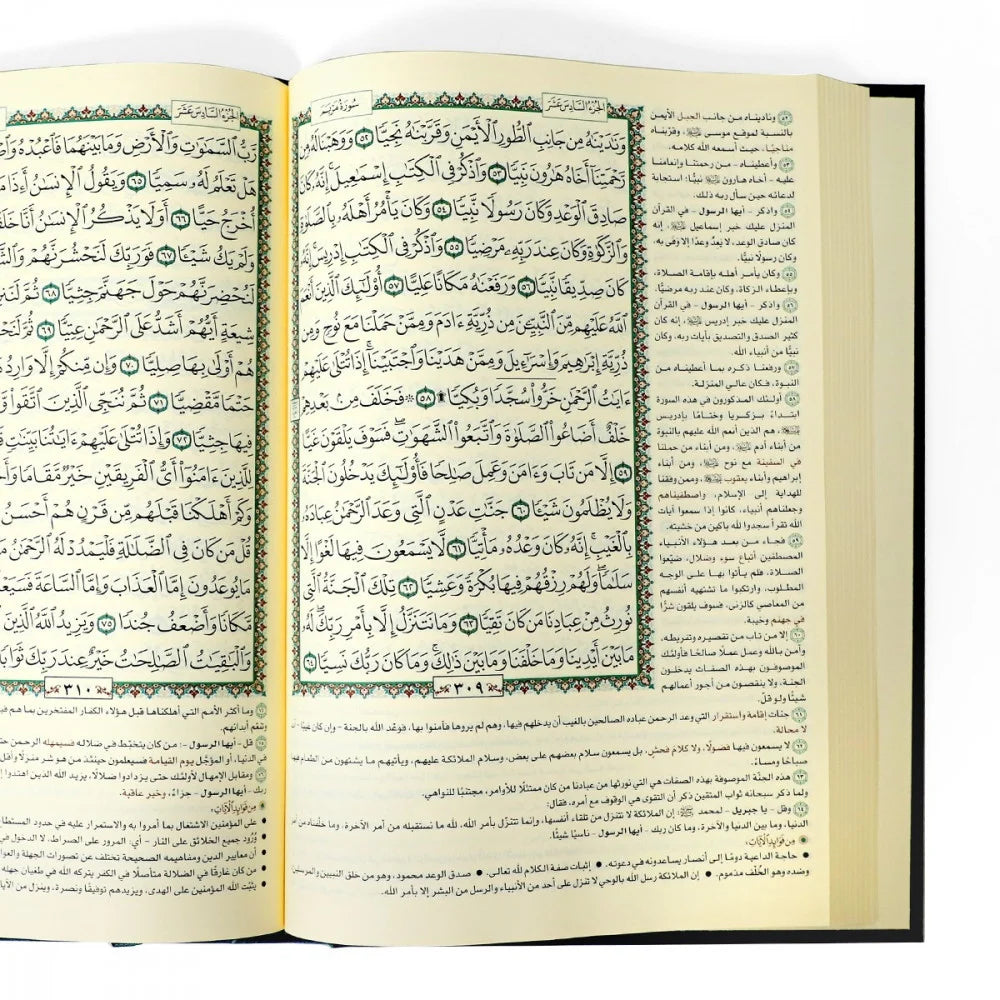 سُورَةُ مَرْيَمَ
الجُزْءُ السَّادِسَ عَشَرَ
وَنَٰدَيْنَٰهُ مِن جَانِبِ ٱلطُّورِ ٱلْأَيْمَنِ وَقَرَّبْنَٰهُ نَجِيًّا ٥٢ وَوَهَبْنَا لَهُۥ مِن
رَّحْمَتِنَآ أَخَاهُ هَٰرُونَ نَبِيًّا ٥٣ وَٱذْكُرْ فِي ٱلْكِتَٰبِ إِسْمَٰعِيلَ إِنَّهُۥ كَانَ
صَادِقَ ٱلْوَعْدِ وَكَانَ رَسُولًا نَّبِيًّا ٥٤ وَكَانَ يَأْمُرُ أَهْلَهُۥ بِٱلصَّلَوٰةِ
وَٱلزَّكَوٰةِ وَكَانَ عِندَ رَبِّهِۦ مَرْضِيًّا ٥٥ وَٱذْكُرْ فِي ٱلْكِتَٰبِ إِدْرِيسَ إِنَّهُۥ
كَانَ صِدِّيقًا نَّبِيًّا ٥٦ وَرَفَعْنَٰهُ مَكَانًا عَلِيًّا ٥٧ أُوْلَٰٓئِكَ ٱلَّذِينَ أَنْعَمَ
ٱللَّهُ عَلَيْهِم مِّنَ ٱلنَّبِيِّـۧنَ مِن ذُرِّيَّةِ ءَادَمَ وَمِمَّنْ حَمَلْنَا مَعَ نُوحٍ وَمِن
ذُرِّيَّةِ إِبْرَٰهِيمَ وَإِسْرَٰٓءِيلَ وَمِمَّنْ هَدَيْنَا وَٱجْتَبَيْنَآ إِذَا تُتْلَىٰ عَلَيْهِمْ
ءَايَٰتُ ٱلرَّحْمَٰنِ خَرُّواْ سُجَّدًا وَبُكِيًّا ۩ ٥٨ ۞ فَخَلَفَ مِنۢ بَعْدِهِمْ
خَلْفٌ أَضَاعُواْ ٱلصَّلَوٰةَ وَٱتَّبَعُواْ ٱلشَّهَوَٰتِ فَسَوْفَ يَلْقَوْنَ غَيًّا
٥٩ إِلَّا مَن تَابَ وَءَامَنَ وَعَمِلَ صَٰلِحًا فَأُوْلَٰٓئِكَ يَدْخُلُونَ ٱلْجَنَّةَ
وَلَا يُظْلَمُونَ شَيْـًٔا ٦٠ جَنَّٰتِ عَدْنٍ ٱلَّتِي وَعَدَ ٱلرَّحْمَٰنُ عِبَادَهُۥ
بِٱلْغَيْبِ إِنَّهُۥ كَانَ وَعْدُهُۥ مَأْتِيًّا ٦١ لَّا يَسْمَعُونَ فِيهَا لَغْوًا إِلَّا
سَلَٰمًا وَلَهُمْ رِزْقُهُمْ فِيهَا بُكْرَةً وَعَشِيًّا ٦٢ تِلْكَ ٱلْجَنَّةُ ٱلَّتِي
نُورِثُ مِنْ عِبَادِنَا مَن كَانَ تَقِيًّا ٦٣ وَمَا نَتَنَزَّلُ إِلَّا بِأَمْرِ رَبِّكَ لَهُۥ
مَا بَيْنَ أَيْدِينَا وَمَا خَلْفَنَا وَمَا بَيْنَ ذَٰلِكَ وَمَا كَانَ رَبُّكَ نَسِيًّا ٦٤
٣٠٩
٥٢ وناديناه من جانب الجبل الأيمن
بالنسبة لموقع موسى ﷺ، وقرّبناه
مناجيًا، حيث أسمعه الله كلامه.
٥٣ وأعطيناه - من رحمتنا وإنعامنا
عليه - أخاه هارون ﷺ نبيًّا؛ استجابة
لدعائه حين سأل ربه ذلك.
٥٤ واذكر - أيها الرسول - في القرآن
المنزل عليك خبر إسماعيل ﷺ، إنه
كان صادق الوعد، لا يعدُ وعدًا إلا وفى به،
وكان رسولًا نبيًّا.
٥٥ وكان يأمر أهله بإقامة الصلاة،
وبإعطاء الزكاة، وكان عند ربه مرضيًّا.
٥٦ واذكر - أيها الرسول - في القرآن
المنزل عليك خبر إدريس ﷺ، إنه كان
كثير الصدق والتصديق بآيات ربه، وكان
نبيًّا من أنبياء الله.
٥٧ ورفعنا ذكره بما أعطيناه من
النبوة، فكان عالي المنزلة.
٥٨ أولئك المذكورون في هذه السورة
ابتداءً بزكريا وختامًا بإدريس
ﷺ، هم الذين أنعم الله عليهم بالنبوة
من أبناء آدم ﷺ، ومن أبناء من حملنا
في السفينة مع نوح ﷺ، ومن أبناء
إبراهيم وأبناء يعقوب ﷺ، وممن وفقنا
للهداية إلى الإسلام، واصطفيناهم
وجعلناهم أنبياء، كانوا إذا سمعوا آيات
الله تقرأ سجدوا لله باكين من خشيته.
٥٩ فجاء من بعد هؤلاء الأنبياء
المصطفين أتباع سوء وضلال، ضيّعوا
الصلاة، فلم يأتوا بها على الوجه
المطلوب، وارتكبوا ما تشتهيه أنفسهم
من المعاصي كالزنى، فسوف يلقون شرًّا
في جهنم وخيبة.
٦٠ إلا من تاب من تقصيره وتفريطه،
وآمن بالله وعمل عملًا صالحًا فأولئك
الموصوفون بهذه الصفات يدخلون
الجنة، ولا ينقصون من أجور أعمالهم
شيئًا ولو قلّ.
٦١ جنات إقامة واستقرار التي وعد الرحمن عباده الصالحين بالغيب أن يدخلهم فيها، وهم لم يروها فآمنوا بها، فوعْد الله بالجنة - وإن كان غيبًا -
لا محالة.
٦٢ لا يسمعون فيها فضولًا، ولا كلام فحش، بل يسمعون سلام بعضهم على بعض، وسلام الملائكة عليهم، ويأتيهم ما يشتهون من الطعام فيها
صباحًا ومساءً.
٦٣ هذه الجنّة الموصوفة بهذه الصفات هي التي نورثها من عبادنا من كان ممتثلًا للأوامر، مجتنبًا للنواهي.
ولما ذكر سبحانه ثواب المتقين ذكر أن التقوى هي الوقوف مع أمره، فقال:
٦٤ وقل - يا جبريل - لمحمد ﷺ: إن الملائكة لا تتنزل من تلقاء أنفسها، وإنما تتنزّل بأمر الله، لله ما نستقبله من أمر الآخرة، وما خلّفناه من أمر
الدنيا، وما بين الدنيا والآخرة، وما كان ربك - أيها الرسول - ناسيًا شيئًا.
مِن فَوَائِدِ الآيَاتِ
• حاجة الداعية دومًا إلى أنصار يساعدونه في دعوته. • إثبات صفة الكلام لله تعالى. • صدق الوعد محمود، وهو من خلق النبيين والمرسلين
وضده وهو الخُلْف مذموم. • إن الملائكة رسل الله بالوحي لا تنزل على أحد من الأنبياء والرسل من البشر إلا بأمر الله.
الجُزْءُ السَّادِسَ عَشَرَ
رَّبُّ ٱلسَّمَٰوَٰتِ وَٱلْأَرْضِ وَمَا بَيْنَهُمَا فَٱعْبُدْهُ
هَلْ تَعْلَمُ لَهُۥ سَمِيًّا ٦٥ وَيَقُولُ ٱلْإِنسَٰنُ أَءِذَا مَا
أُخْرَجُ حَيًّا ٦٦ أَوَلَا يَذْكُرُ ٱلْإِنسَٰنُ أَنَّا
وَلَمْ يَكُ شَيْـًٔا ٦٧ فَوَرَبِّكَ لَنَحْشُرَنَّهُمْ
لَنُحْضِرَنَّهُمْ حَوْلَ جَهَنَّمَ جِثِيًّا ٦٨ ثُمَّ
شِيعَةٍ أَيُّهُمْ أَشَدُّ عَلَى ٱلرَّحْمَٰنِ عِتِيًّا ٦٩ ثُمَّ
هُمْ أَوْلَىٰ بِهَا صِلِيًّا ٧٠ وَإِن مِّنكُمْ إِلَّا
حَتْمًا مَّقْضِيًّا ٧١ ثُمَّ نُنَجِّي ٱلَّذِينَ ٱتَّقَواْ
فِيهَا جِثِيًّا ٧٢ وَإِذَا تُتْلَىٰ عَلَيْهِمْ ءَايَٰتُنَا بَيِّنَٰتٍ
لِلَّذِينَ ءَامَنُوٓاْ أَيُّ ٱلْفَرِيقَيْنِ خَيْرٌ مَّقَامًا
وَكَمْ أَهْلَكْنَا قَبْلَهُم مِّن قَرْنٍ هُمْ أَحْسَنُ
قُلْ مَن كَانَ فِي ٱلضَّلَٰلَةِ فَلْيَمْدُدْ لَهُ ٱلرَّحْمَٰنُ
مَا يُوعَدُونَ إِمَّا ٱلْعَذَابَ وَإِمَّا ٱلسَّاعَةَ
مَّكَانًا وَأَضْعَفُ جُندًا ٧٥ وَيَزِيدُ ٱللَّهُ ٱلَّذِينَ
وَٱلْبَٰقِيَٰتُ ٱلصَّٰلِحَٰتُ خَيْرٌ عِندَ رَبِّكَ ثَوَابًا
٣١٠
وما أكثر الأمم التي أهلكناها قبل هؤلاء الكفار المفتخرين بما هم فيه
وتنعم أبدانهم.
قل - أيها الرسول -: من كان يتخبّط في ضلاله فسيمهله الرحمن
في الدنيا، أو المؤجَّل يوم القيامة فسيعلمون حينئذ من هو شر منزلًا وأقل
ومقابل الإمهال لأولئك حتى يزدادوا ضلالًا، يزيد الله الذين اهتدوا
ربك - أيها الرسول - جزاءً، وخير عاقبة.
مِن فَوَائِدِ الآيَاتِ
• على المؤمنين الاشتغال بما أمروا به والاستمرار عليه في حدود المستطاع
• وُرُود جميع الخلائق على النار - أي: المرور على الصراط، لا الدخول في
• أن معايير الدين ومفاهيمه الصحيحة تختلف عن تصورات الجهلة
• من كان غارقًا في الضلالة متأصلًا في الكفر يتركه الله في طغيان جهله
• يثبّت الله المؤمنين على الهدى، ويزيدهم توفيقًا ونصرة، وينزل من